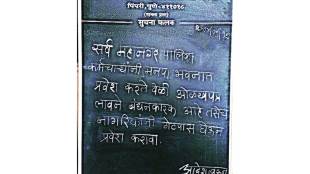 पिंपरी, पुणे-४११०१८
सूचना फलक
सर्व महानगर पालिका
कर्मचाऱ्यांनी मनपा भवनात
प्रवेश करते वेळी ओळखपत्र
लावने बंधनकारक आहे तसेच
नागरिकांनी गेटपास घेऊन
प्रवेश करावा.